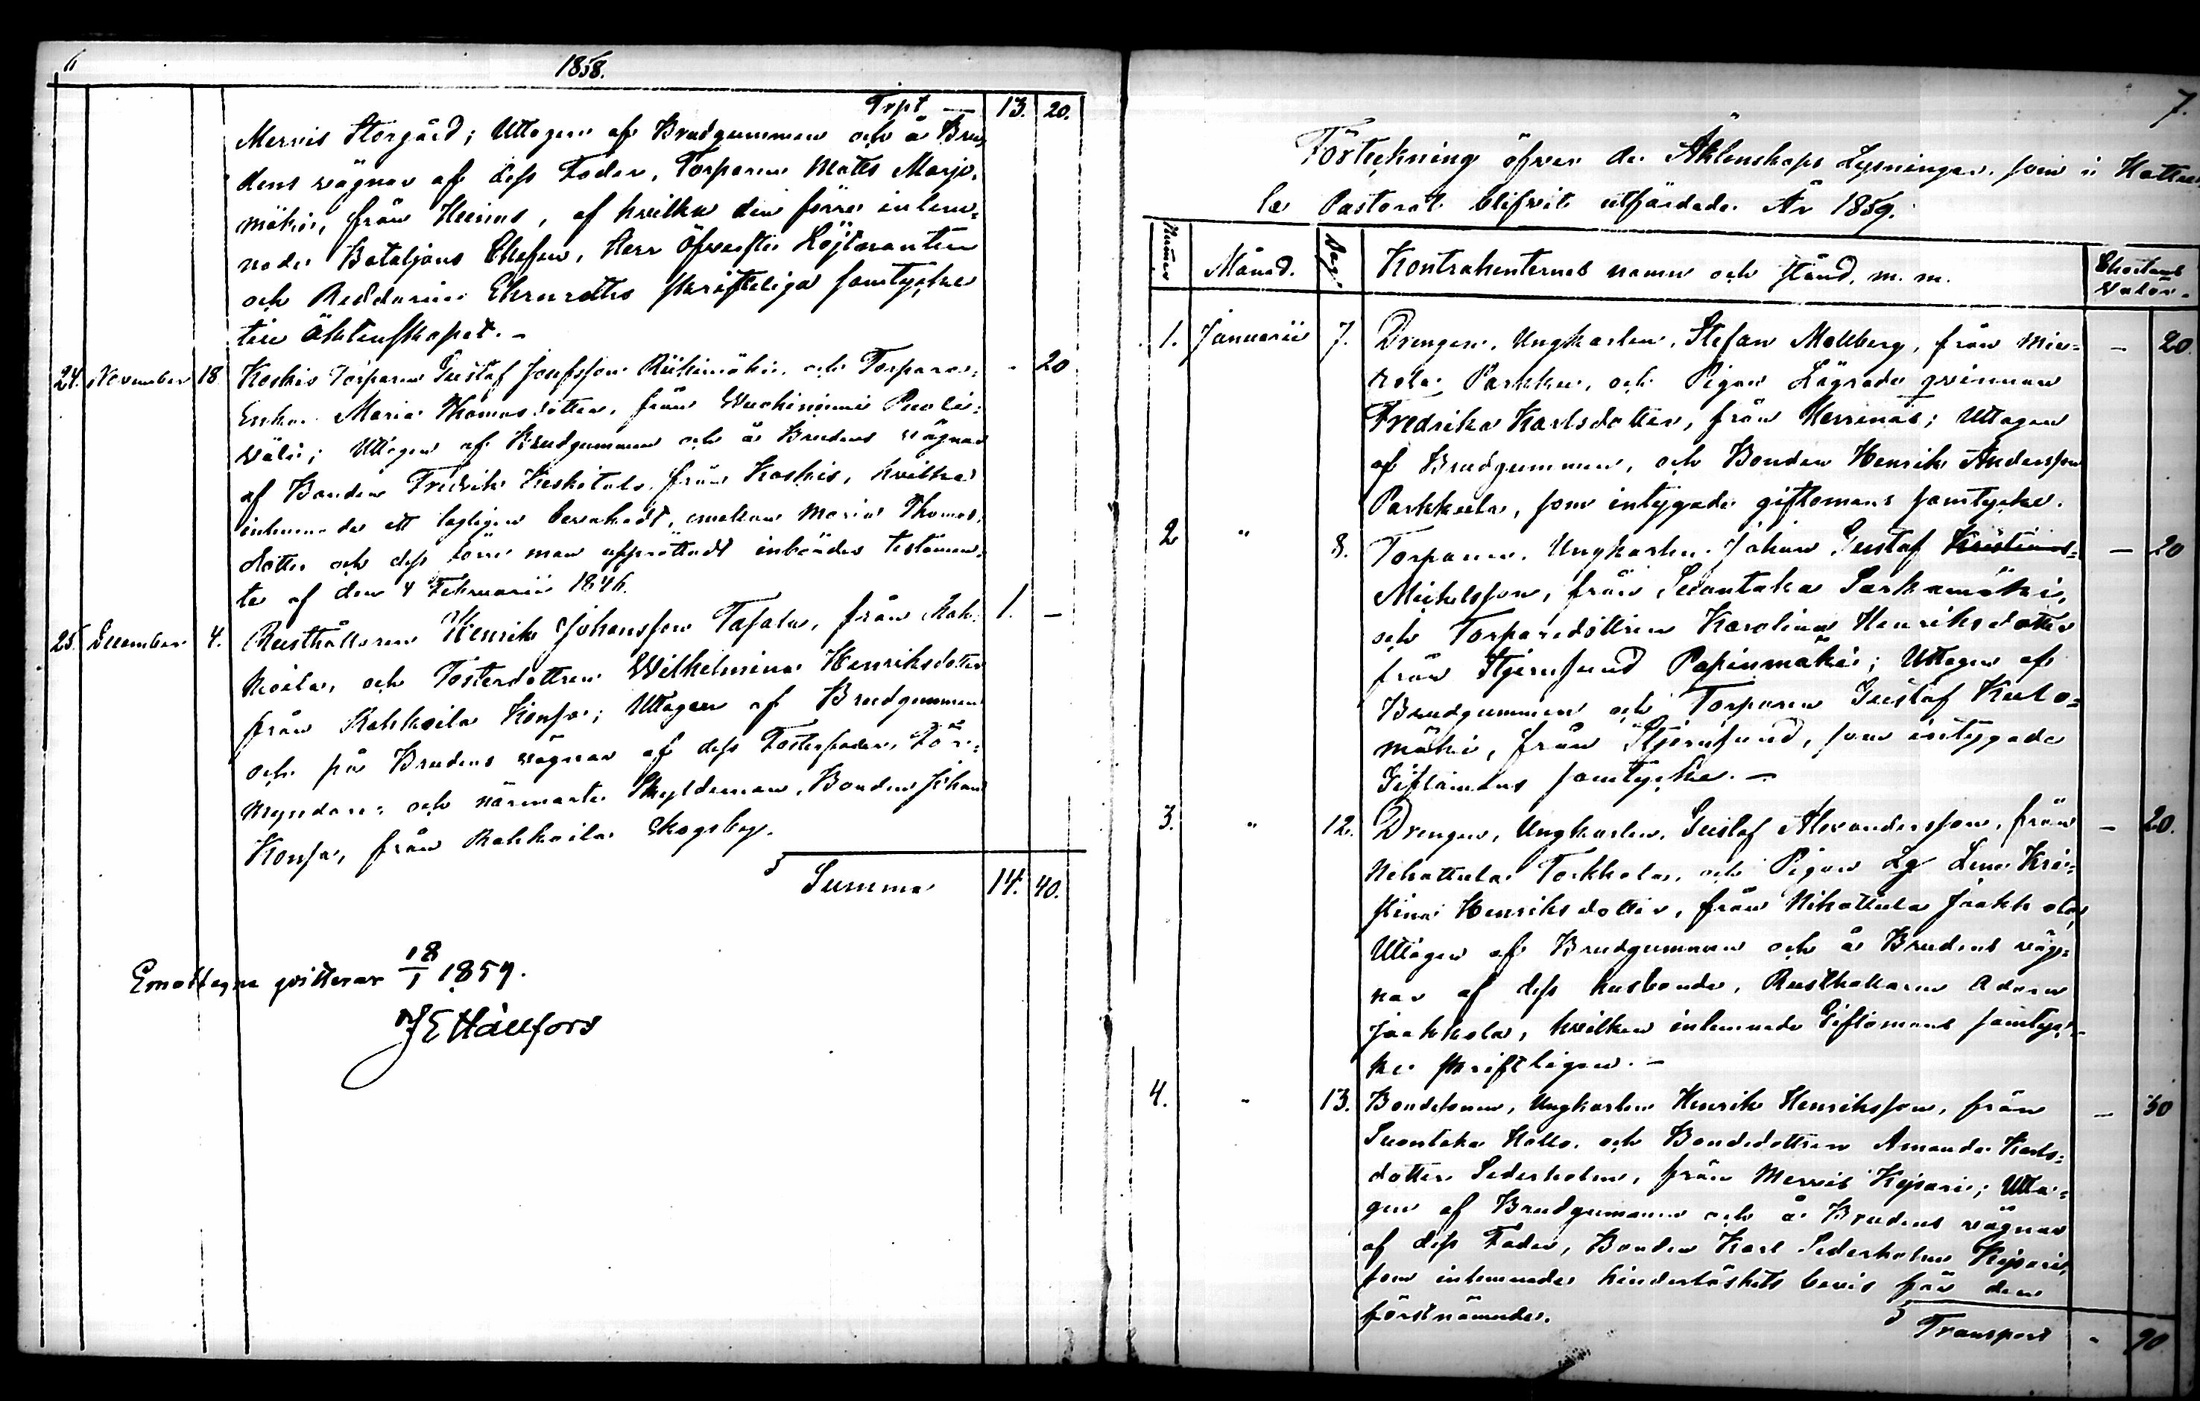 6
1858.
Trpt — 13. 20.
Mervis Storgård; Uttagen af Brudgummen och å Bru-
dens vägnar af dess Fader, Torparen Matts Marje-
mäki, från Heinus, af hvilka den förre inlem-
nade Bataljons Chefen, Herr Öfverste Löjtnanten
och Riddaren Ehrnroths skrifteliga samtycke
till äktenskapet. —
24. November 18. Koskis Torparen Gustaf Josefsson Riihimäki och Torpare-
Enkan Maria Thomasdotter, från - 20
väli; Uttagen af Brudgummen och å Brudens vägnar
af Bonden Fredrik Keskitalo från Koskis, hvilka
inlemnade ett lagligen bevaknadt, emellan Maria Thomas-
dotter och dess förre man upprättadt inbördes testamen-
te af den 4 Februarii 1846.
25. December 4. Rusthållaren Henrik Johansson Tafala, från Rah- 1. —
koila, och Fosterdottren Wilhelmina Henriksdotter
från Rahkoila Konsa; Uttagen af Brudgummen
och på Brudens vägnar af dess Fosterfader, För-
myndare och närmaste Skyldeman, Bonden Johan
Konsa, från Rahkoila Skogsby.
Summa 14. 40.
Emottagna qvitterar 18/1 1859.
J E Hällfors
7.
Förteckning öfver de Äktenskaps Lysningar, som i Hattu-
la Pastorat blifvit utfärdade År 1859.
Numer Månad. Dag. Kontrahenternes namn och stånd, m. m. Charta Valör.
1. Januarii 7. Drengen, Ungkarlen, Stefan Mallberg, från Mie- — 20.
rola Parkku, och Pigan Lägrade qvinnan
Fredrika Karlsdotter, från Herrnäs; Uttagen
af Brudgummen, och Bonden Henrik Andersson
Parkkula, som intygade giftomans samtycke.
2 " 8. Torparen, Ungkarlen, Johan Gustaf Kristians- — 20
Mickelsson, från Suontaka Sarkamäki,
och Torparedottren Karolina Henriksdotter
från Stjernsund Papinmäki; Uttagen af
Brudgummen och Torparen Gustaf Kulo-
mäki, från Stjernsund, som intygade
Giftomans samtycke. —
3. " 12. Drengen, Ungkarlen, Gustaf Alexandersson, från — 20.
Nihattula Torkkola, och Pigan Lg Lena Kri-
stina Henriksdotter, från Nihattula Jaakkola,
Uttagen af Brudgummen och å Brudens väg-
nar af dess husbonde, Rusthållaren Adam
Jaakkola, hvilken inlemnade Giftomans samtyc-
ke skriftligen. —
4. " 13. Bondesonen, Ungkarlen Henrik Henriksson, från — 30
Suontaka Hollo, och Bondedottren Amanda Karls-
dotter Sederholm, från Mervis Kejsari; Utta-
gen af Brudgummen och å Brudens vägnar
af dess Fader, Bonden Karl Sederholm Kejsari,
som inlemnade hinderlöshets bevis för den
förstnämnde.
Transport - 90